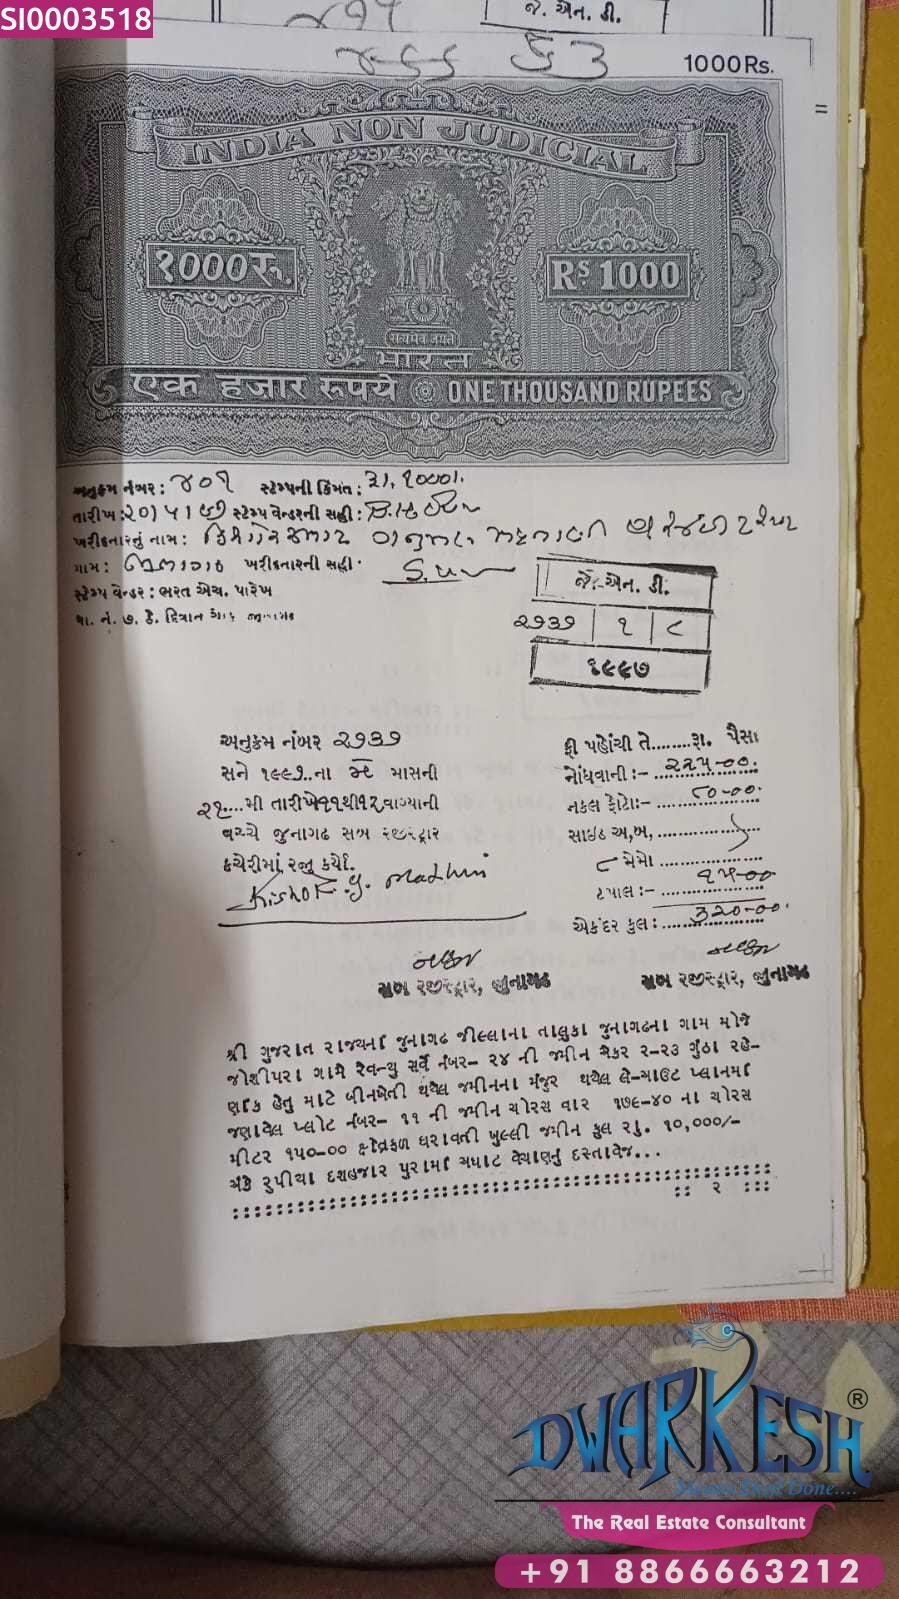 SI0003518
જે. એન. ડી.
1000 Rs.
INDIA NON JUDICIAL
१000रु.
Rs 1000
सत्यमेव जयते
भारत
एक हजार रुपये ONE THOUSAND RUPEES
અનુક્રમ નંબર: ૪૦૧ સ્ટેમ્પની કિંમત: રૂા. ૧૦૦૦/.
તારીખ: ૨૦/૫/૯૭ સ્ટેમ્પ વેન્ડરની સહી:
ખરીદનારનું નામ:
ગામ: ખરીદનારની સહી.
સ્ટેમ્પ વેન્ડર: ભરત એચ. પારેખ
જે. એન. ડી.
૨૧૩૧ ૧ ૮
૧૯૯૭
અનુક્રમ નંબર ૨૧૩૧
સને ૧૯૯૭..ના મે માસની
૨૧....મી તારીખે ૧૧થી૧૨ વાગ્યાની
વચ્ચે જુનાગઢ સબ રજીસ્ટ્રાર
કચેરીમાં રજુ કર્યો.
Kishor. G. Madhwi
ફી પહોંચી તે........રૂા. પૈસા
નોંધવાની:- ૨૨૫-૦૦.
નકલ ફોટો:- ૮૦-૦૦.
સાઇડ અ,બ,
૮ મેમો
ટપાલ:- ૧૫-૦૦
એકંદર કુલ: ૩૨૦-૦૦.
સબ રજીસ્ટ્રાર, જુનાગઢ
સબ રજીસ્ટ્રાર, જુનાગઢ
શ્રી ગુજરાત રાજ્યના જુનાગઢ જીલ્લાના તાલુકા જુનાગઢના ગામ મોજે
જોશીપરા ગામે રેવન્યુ સર્વે નંબર- ૨૪ ની જમીન એકર ૨-૨૩ ગુંઠા રહે-
ણાંક હેતુ માટે બીનખેતી થયેલ જમીનના મંજુર થયેલ લે-આઉટ પ્લાનમાં
જણાવેલ પ્લોટ નંબર- ૧૧ ની જમીન ચોરસ વાર ૧૭૯-૪૦ ના ચોરસ
મીટર ૧૫૦-૦૦ ક્ષેત્રફળ ધરાવતી ખુલ્લી જમીન કુલ રૂા. ૧૦,૦૦૦/-
અંકે રુપીયા દશહજાર પુરામાં અઘાટ વેચાણનું દસ્તાવેજ...
:: ૨ :::
DWARKESH®
The Real Estate Consultant
+91 8866663212